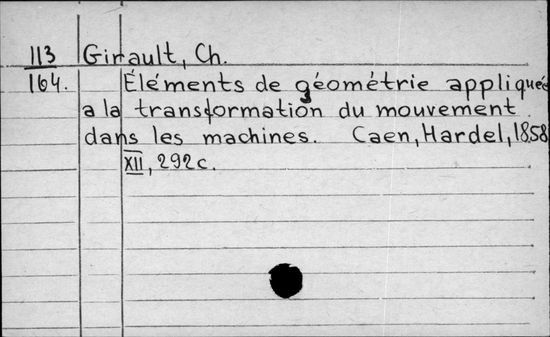 113 Girault, Ch.
164. Éléments de géométrie appliquée
a la transformation du mouvement
dans les machines. Caen, Hardel, 1858
XII, 292c.